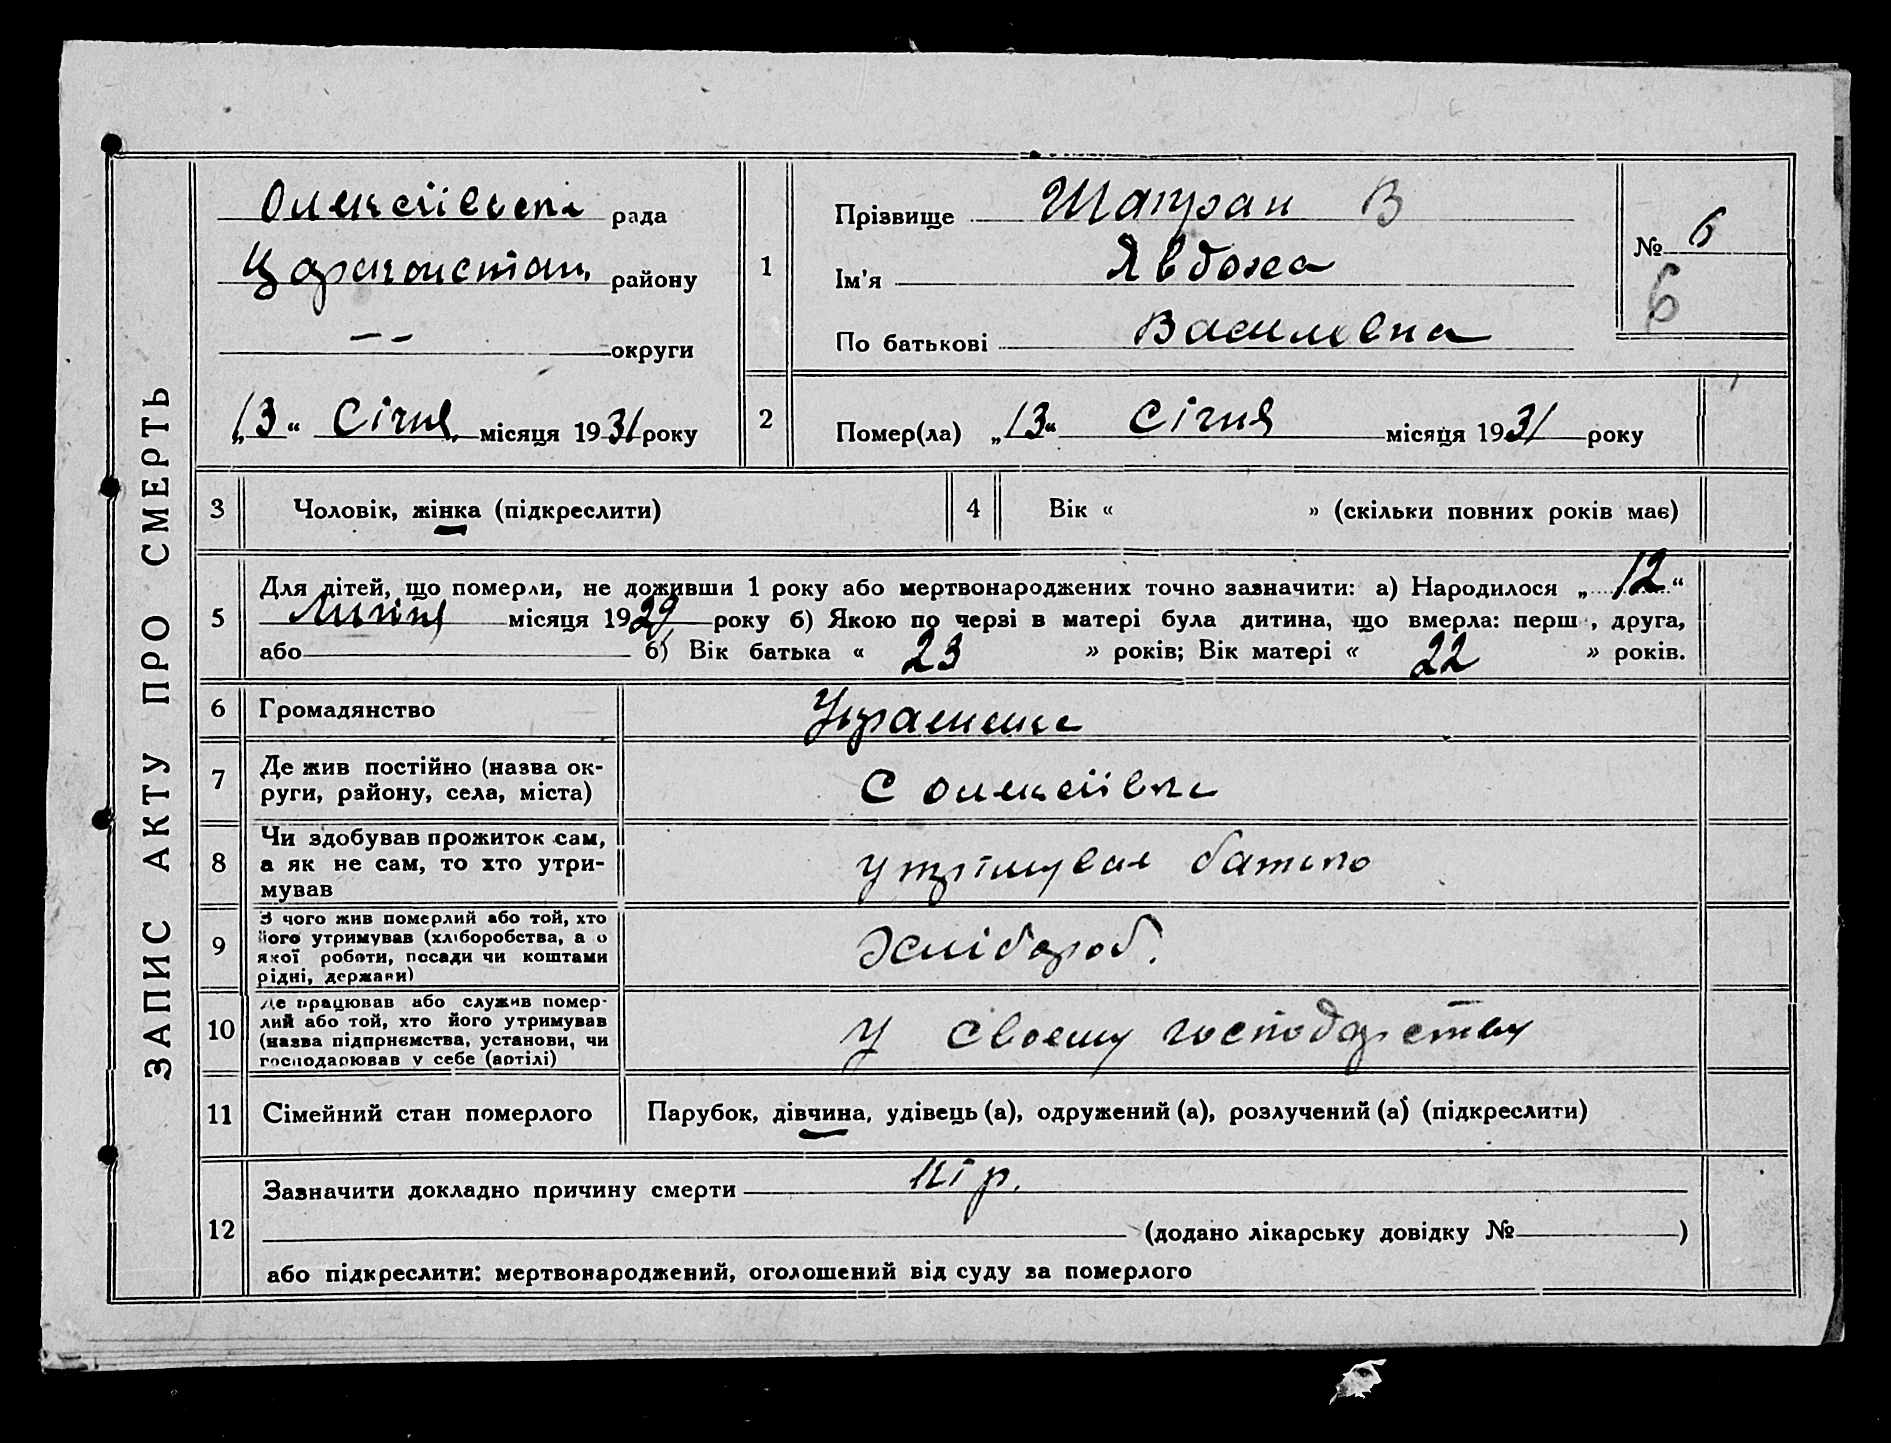 ЗАПИС АКТУ ПРО СМЕРТЬ
Олексіївська рада
Царекостан. району
— — округи
„13“ Січня місяця 1931 року
1
Прізвище Шатран В
Ім'я Явдоха
По батькові Василевна
№ 6
6
2
Помер(ла) „13“ Січня місяця 1931 року
3 Чоловік, жінка (підкреслити)
4 Вік « » (скільки повних років має)
5
Для дітей, що померли, не доживши 1 року або мертвонароджених точно зазначити: а) Народилося „12“
Липня місяця 1929 року б) Якою по черзі в матері була дитина, що вмерла: перш , друга,
або б) Вік батька « 23 » років; Вік матері « 22 » років.
6 Громадянство Украинец
7 Де жив постійно (назва ок-
руги, району, села, міста)
С Олексіївка
8 Чи здобував прожиток сам,
а як не сам, то хто утри-
мував
утрімував батько
9 З чого жив померлий або той, хто
його утримував (хліборобства, а о
якої роботи, посади чи коштами
рідні, держави)
Хлібороб.
10 Де працював або служив помер-
лий або той, хто його утримував
(назва підприємства, установи, чи
господарював у себе (артілі)
У своему господарству
11 Сімейний стан померлого Парубок, дівчина, удівець (а), одружений (а), розлучений (а) (підкреслити)
12
Зазначити докладно причину смерти кір.
(додано лікарську довідку № )
або підкреслити: мертвонароджений, оголошений від суду за померлого